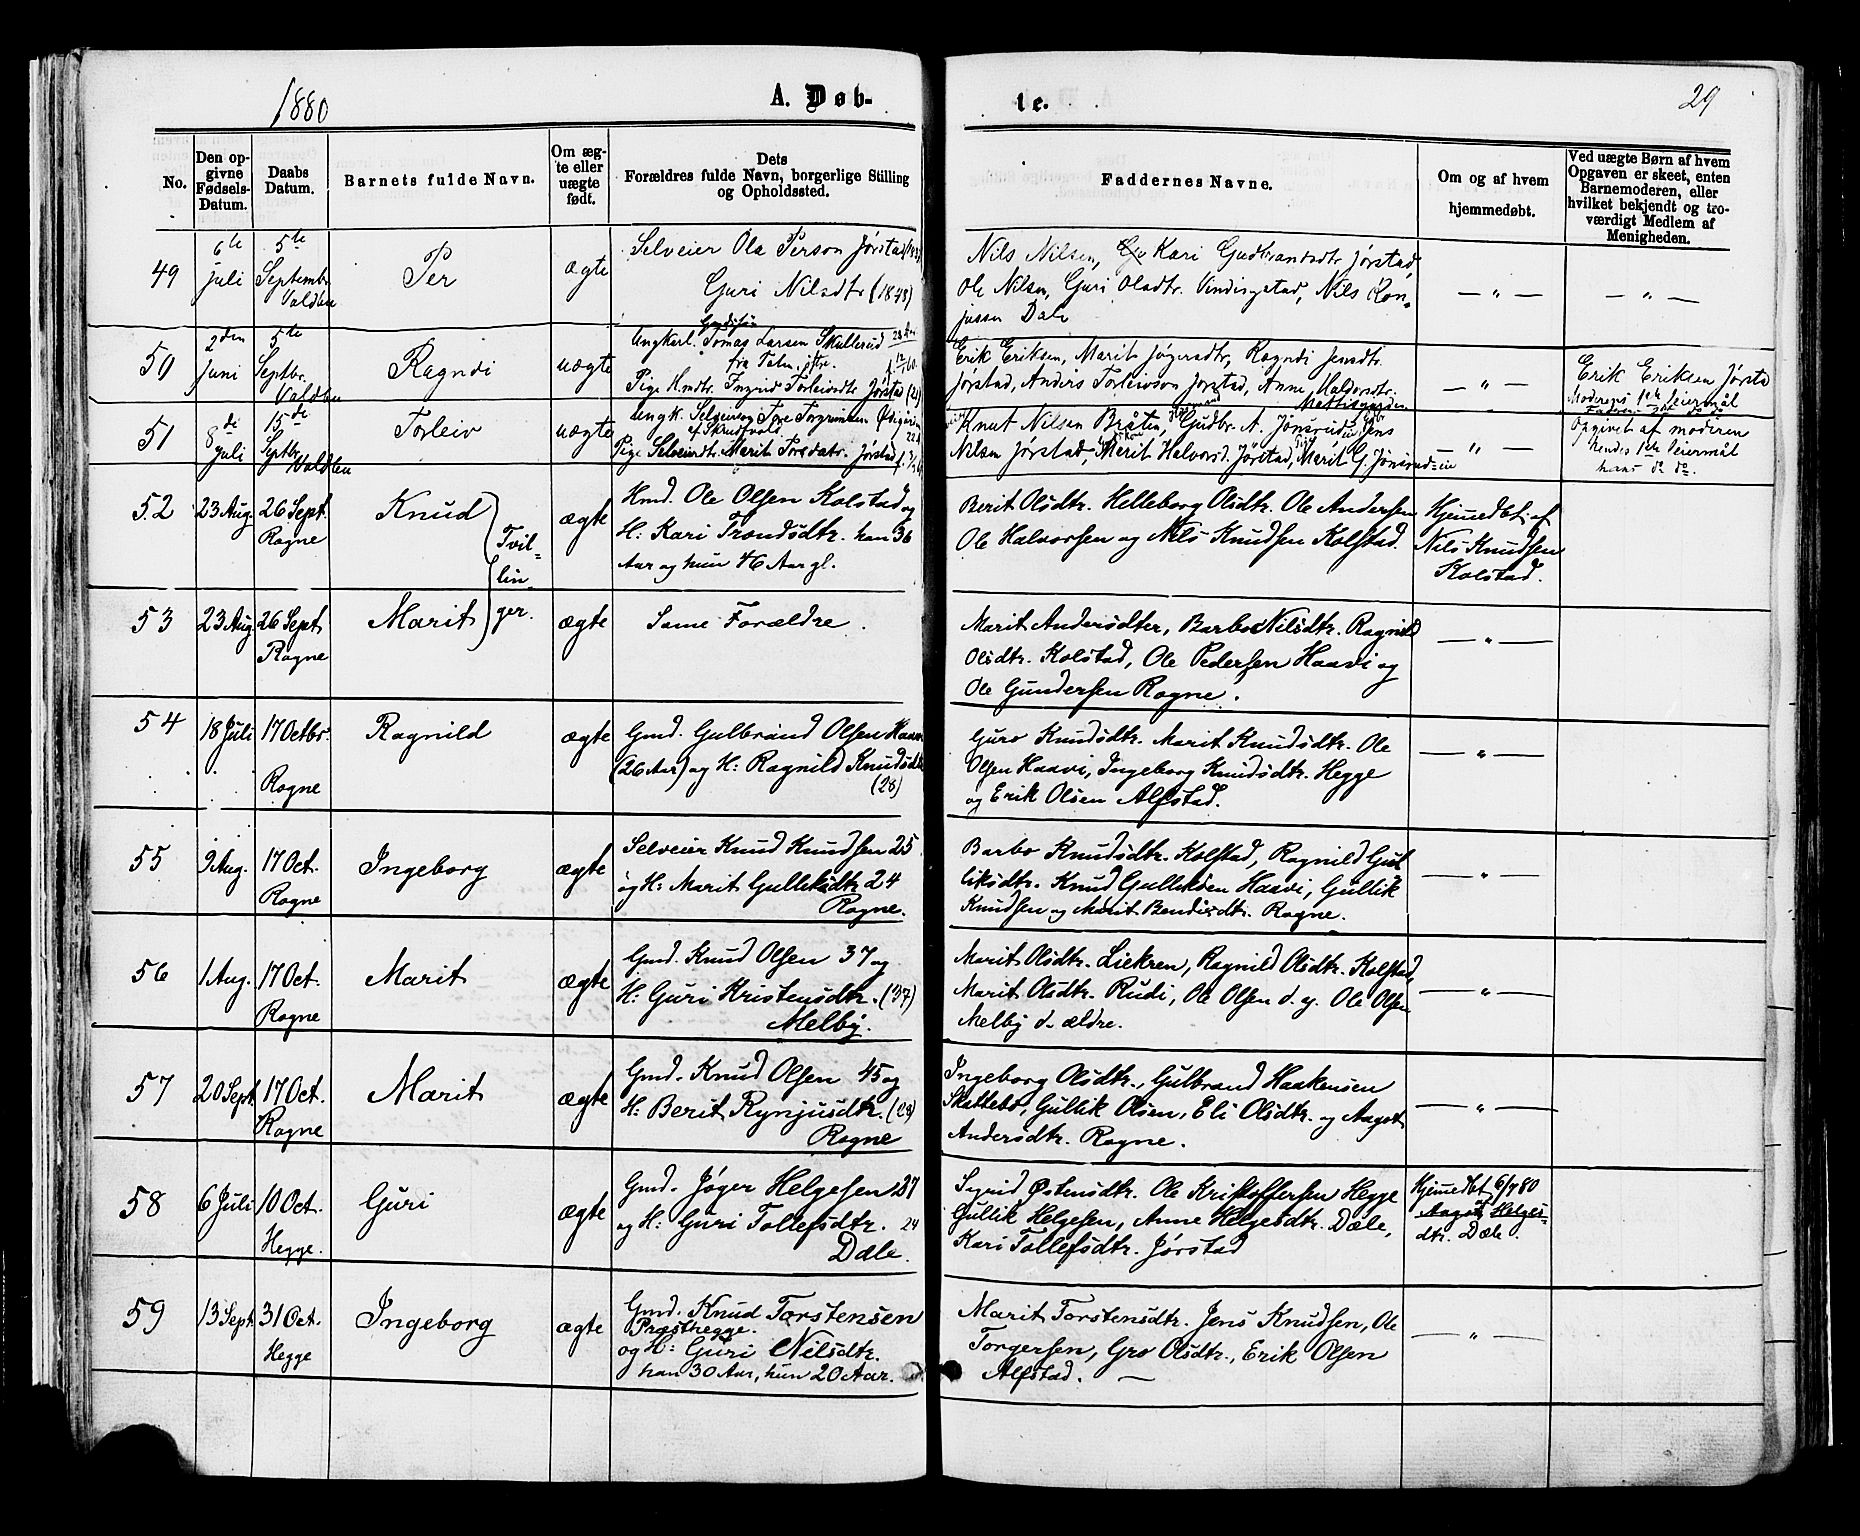 1880
A. Døb-
te.
29
No.
Den op-
givne
Fødsels-
Datum.
Daabs
Datum.
Barnets fulde Navn.
Om æg-
te eller
uægte
født.
Dets
Forældres fulde Navn, borgerlige Stilling
og Opholdssted.
Faddernes Navne.
Om og af hvem
hjemmedøbt.
Ved uægte Børn af hvem
Opgaven er skeet, enten
Barnemoderen, eller
hvilket bekjendt og tro-
værdigt Medlem af
Menigheden.
49
6te
juli
5te
Septembr
Valdben
Per
ægte
Selveier Ola Person Jørstad
Guri Nilsdtr (1848)
Nils Nilsen, Kari Gudbrandsdtr Jørstad,
Ole Nilsen, Guri Olsdtr. Vindisgstad, Nils Kon-
jussen Dale
— " —
— " —
50
2den
juni
5te
Septbr.
Valdben
Ragndi
uægte
Ungkarl. Tomas Larsen Skullerud
Pige Hmdtr. Ingrid Torleivsdtr Jørstad (21)
Erik Eriksen, Marit Jøgersdtr, Ragndi Jensdtr.
Jørstad, Anders Torleivson Jørstad, Anne Haldorsdtr.
— " —
Erik Eriksen Jørsta
Moderens 1ste Leiermål
51
8de
juli
15de
Septbr
Valdben
Torleiv
uægte
Ungk. Selveiersøn Tore Torgrimsen
Pige Selveierdtr. Marit Torsdatr. Jørstad
Knut Nilsen Bråten, Gudbr. A. Jønsrud, Jens
Nilsen Jørstad, Marit Halvorsd. Jørstad, Marit G. Jønsrud
— " —
Opgivet af moderen
hendes 1ste Leiermål
hans do do.
52
23 Aug.
26 Sept.
Rogne
Knud
Tvil-
lin-
ger.
ægte
Hmd. Ole Olsen Kolstad og
H: Kari Trondsdtr. han 36
Aar og hun 46 Aar gl.
Berit Olsdtr. Helleborg Olsdtr. Ole Andersen
Ole Halvorsen og Nils Knudsen Kolstad.
Hjemedbt. af
Nils Knudsen
Kolstad.
53
23 Aug.
26 Sept
Rogne
Marit
ægte
Same Forældre.
Marit Andersdter, Barbo Nilsdtr. Ragnild
Olsdtr. Kolstad, Ole Pedersen Haavi og
Ole Gundersen Rogne.
— " —
54
18 Juli
17 Octbr.
Rogne
Ragnild
ægte
Gmd. Gulbrand Olsen Haavi
(26 Aar) og H: Ragnild Knudsdtr
(28)
Guro Knudsdtr. Marit Knudsdtr. Ole
Olsen Haavi, Ingeborg Knudsdtr. Hegge
og Erik Olsen Alfstad.
— " —
55
9 Aug.
17 Oct.
Rogne
Ingeborg
ægte
Selveier Knud Knudsen 25
og H: Marit Gulliksdtr 24
Rogne.
Barbo Knudsdtr. Kolstad, Ragnild Gul
liksdtr. Knud Gulliksen Haavi, Gullik
Knudsen og Marit Bendixsdtr. Rogne.
— " —
56
1 Aug.
17 Oct.
Rogne
Marit
ægte
Gmd. Knud Olsen 37 og
H: Guri Kristensdtr. (37)
Melby.
Marit Olsdtr. Liekren, Ragnild Olsdtr. Kolstad,
Marit Olsdtr. Rudi, Ole Olsen d. y. Ole Olsen
Melby d. ældre.
— " —
57
20 Sept
17 Oct.
Rogne
Marit
ægte
Gmd. Knud Olsen 45 og
H: Berit Rynjusdtr. (28)
Rogne
Ingeborg Olsdtr., Gulbrand Haakensen
Skattebo, Gullik Olsen, Eli Olsdtr. og Aagot
Andersdtr. Rogne.
— " —
58
6 Juli
10 Oct.
Hegge.
Guri
ægte
Gmd. Jøger Helgesen 27
og H: Guri Tollefsdtr. 24
Dale.
Sigrid Østensdtr. Ole Kristoffersen Hegge
Gullik Helgesen, Anne Helgesdtr. Dale,
Kari Tollefsdtr. Jørstad
Hjemedbt 6/7 80
af
Aagot Helges-
dtr. Dale.
59
13 Sept
31 Oct.
Hegge
Ingeborg
ægte
Gmd. Knud Torstensen
Præsthegge.
og H: Guri Nilsdtr.
han 30 Aar, hun 20 Aar.
Marit Torstensdtr. Jens Knudsen, Ole
Torgersen, Gro Olsdtr., Erik Olsen
Alfstad. —
— " —